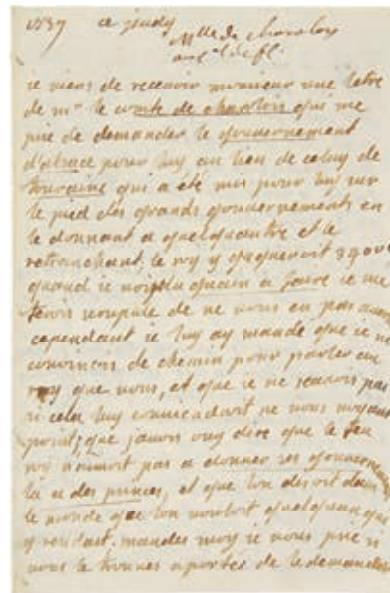 1737 ce jeudy
Mlle de charolois
au cal de fl.
ie viens de recevoir monsieur une letre
de mr le comte de charolois qui me
prie de demander le gouvernement
d'alsace pour luy au lieu de celuy de
touraine qui a été mis pour luy sur
le pied des grands gouvernements en
le donnant a quelquautre et le
retranchant, le roy y gagneroit
quand ie nay a faire ie me
ferois scrupule de ne vous en pas
cependant ie luy ay mandé que ie ne
connoissois de chemin pour parler au
roy que vous, et que ie ne scavois pas
si cela luy conviendroit ne vous voyant
point; que javois ouy dire que le feu
roy naimoit pas a donner ces gouverne
la a des princes, et que lon disoit dans
le monde que lon vouloit quelquun qui
y residast. mandes moy ie vous prie si
vous le trouves a portée de le demander